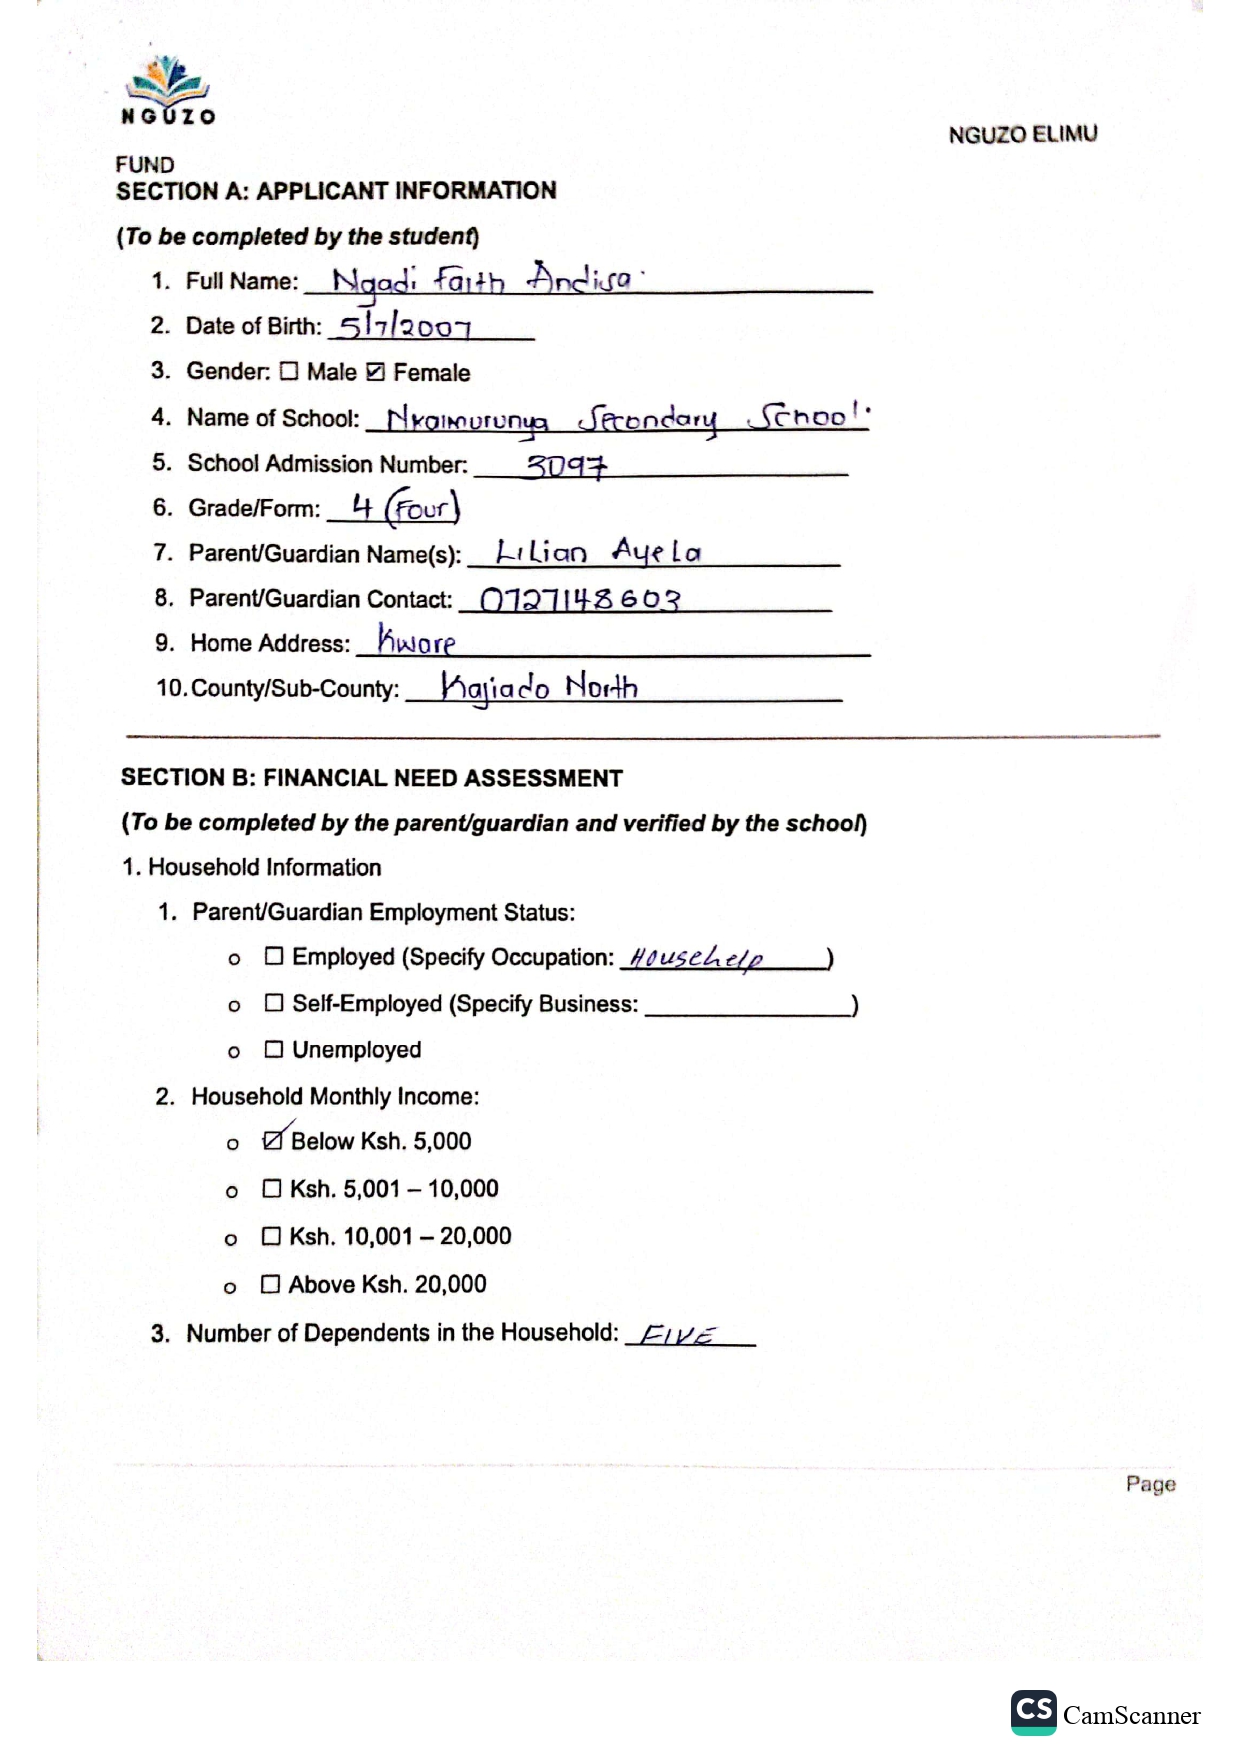 NGUZO
NGUZO ELIMU
FUND
SECTION A: APPLICANT INFORMATION
(To be completed by the student)
1. Full Name: Ngadi Faith Andisa
2. Date of Birth: 5/7/2007
3. Gender: ☐ Male ☑ Female
4. Name of School: Nkaimurunya Secondary School.
5. School Admission Number: 3097
6. Grade/Form: 4 (Four)
7. Parent/Guardian Name(s): Lilian Ayela
8. Parent/Guardian Contact: 0727148603
9. Home Address: Kware
10. County/Sub-County: Kajiado North
SECTION B: FINANCIAL NEED ASSESSMENT
(To be completed by the parent/guardian and verified by the school)
1. Household Information
1. Parent/Guardian Employment Status:
o ☐ Employed (Specify Occupation: Househelp)
o ☐ Self-Employed (Specify Business: ____________)
o ☐ Unemployed
2. Household Monthly Income:
o ☑ Below Ksh. 5,000
o ☐ Ksh. 5,001 – 10,000
o ☐ Ksh. 10,001 – 20,000
o ☐ Above Ksh. 20,000
3. Number of Dependents in the Household: FIVE
Page
CS CamScanner